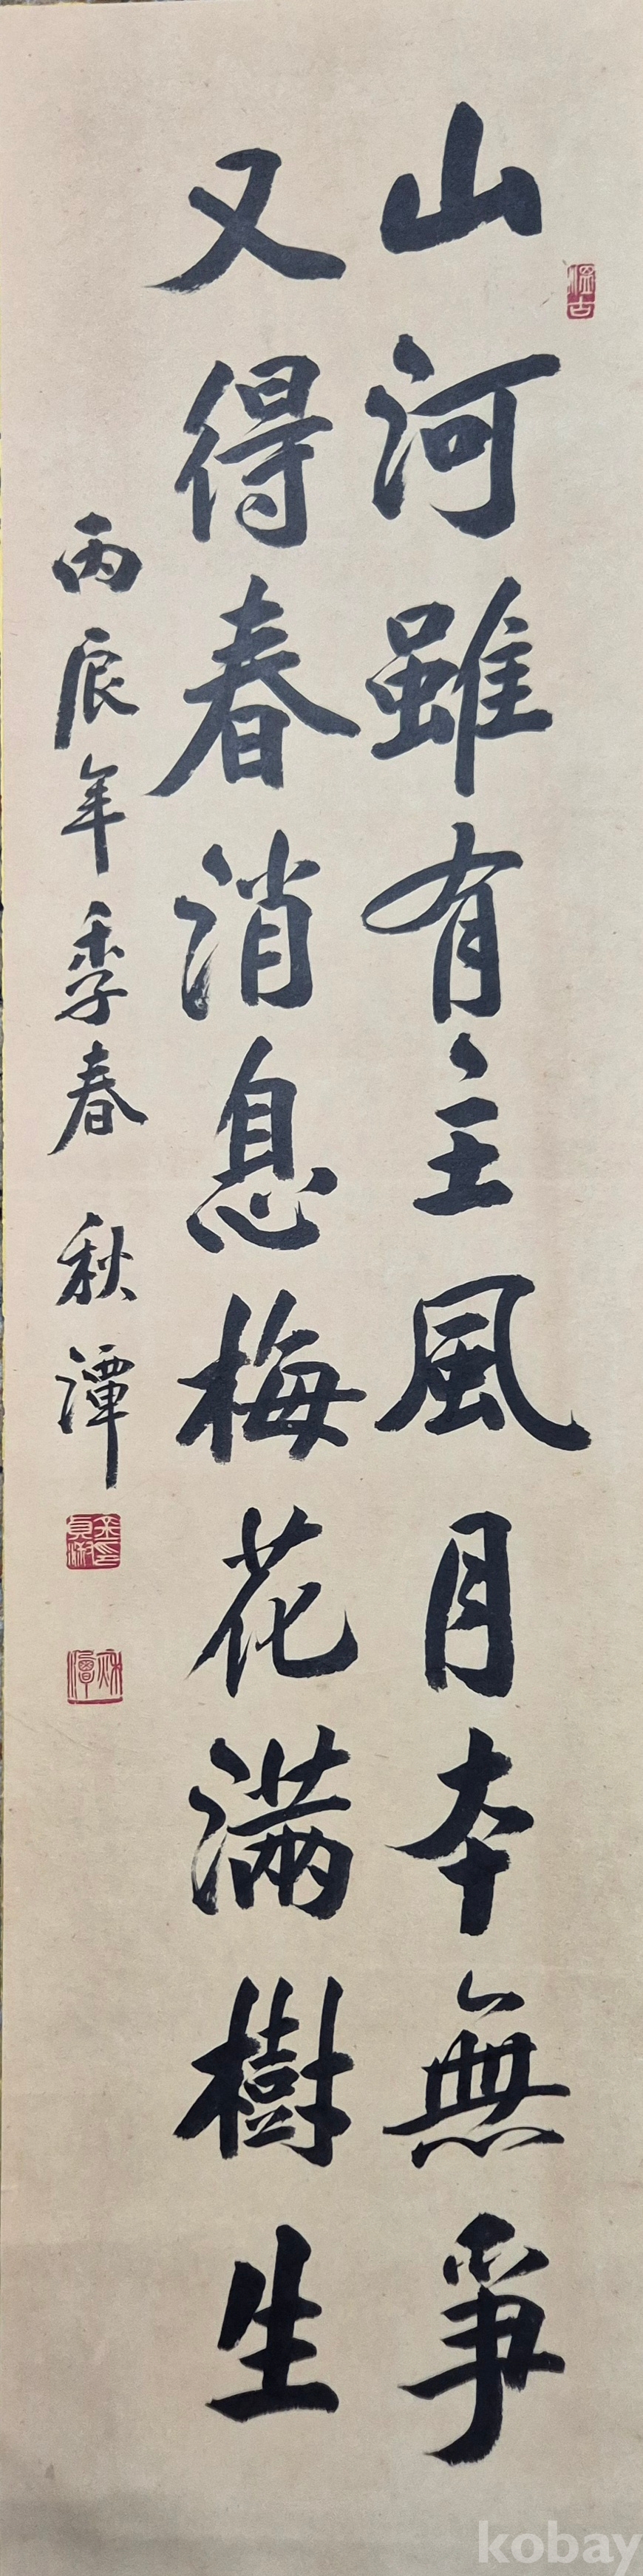 山河雖有主風月本無爭
又得春消息梅花滿樹生
丙辰年季春 秋潭
kobay